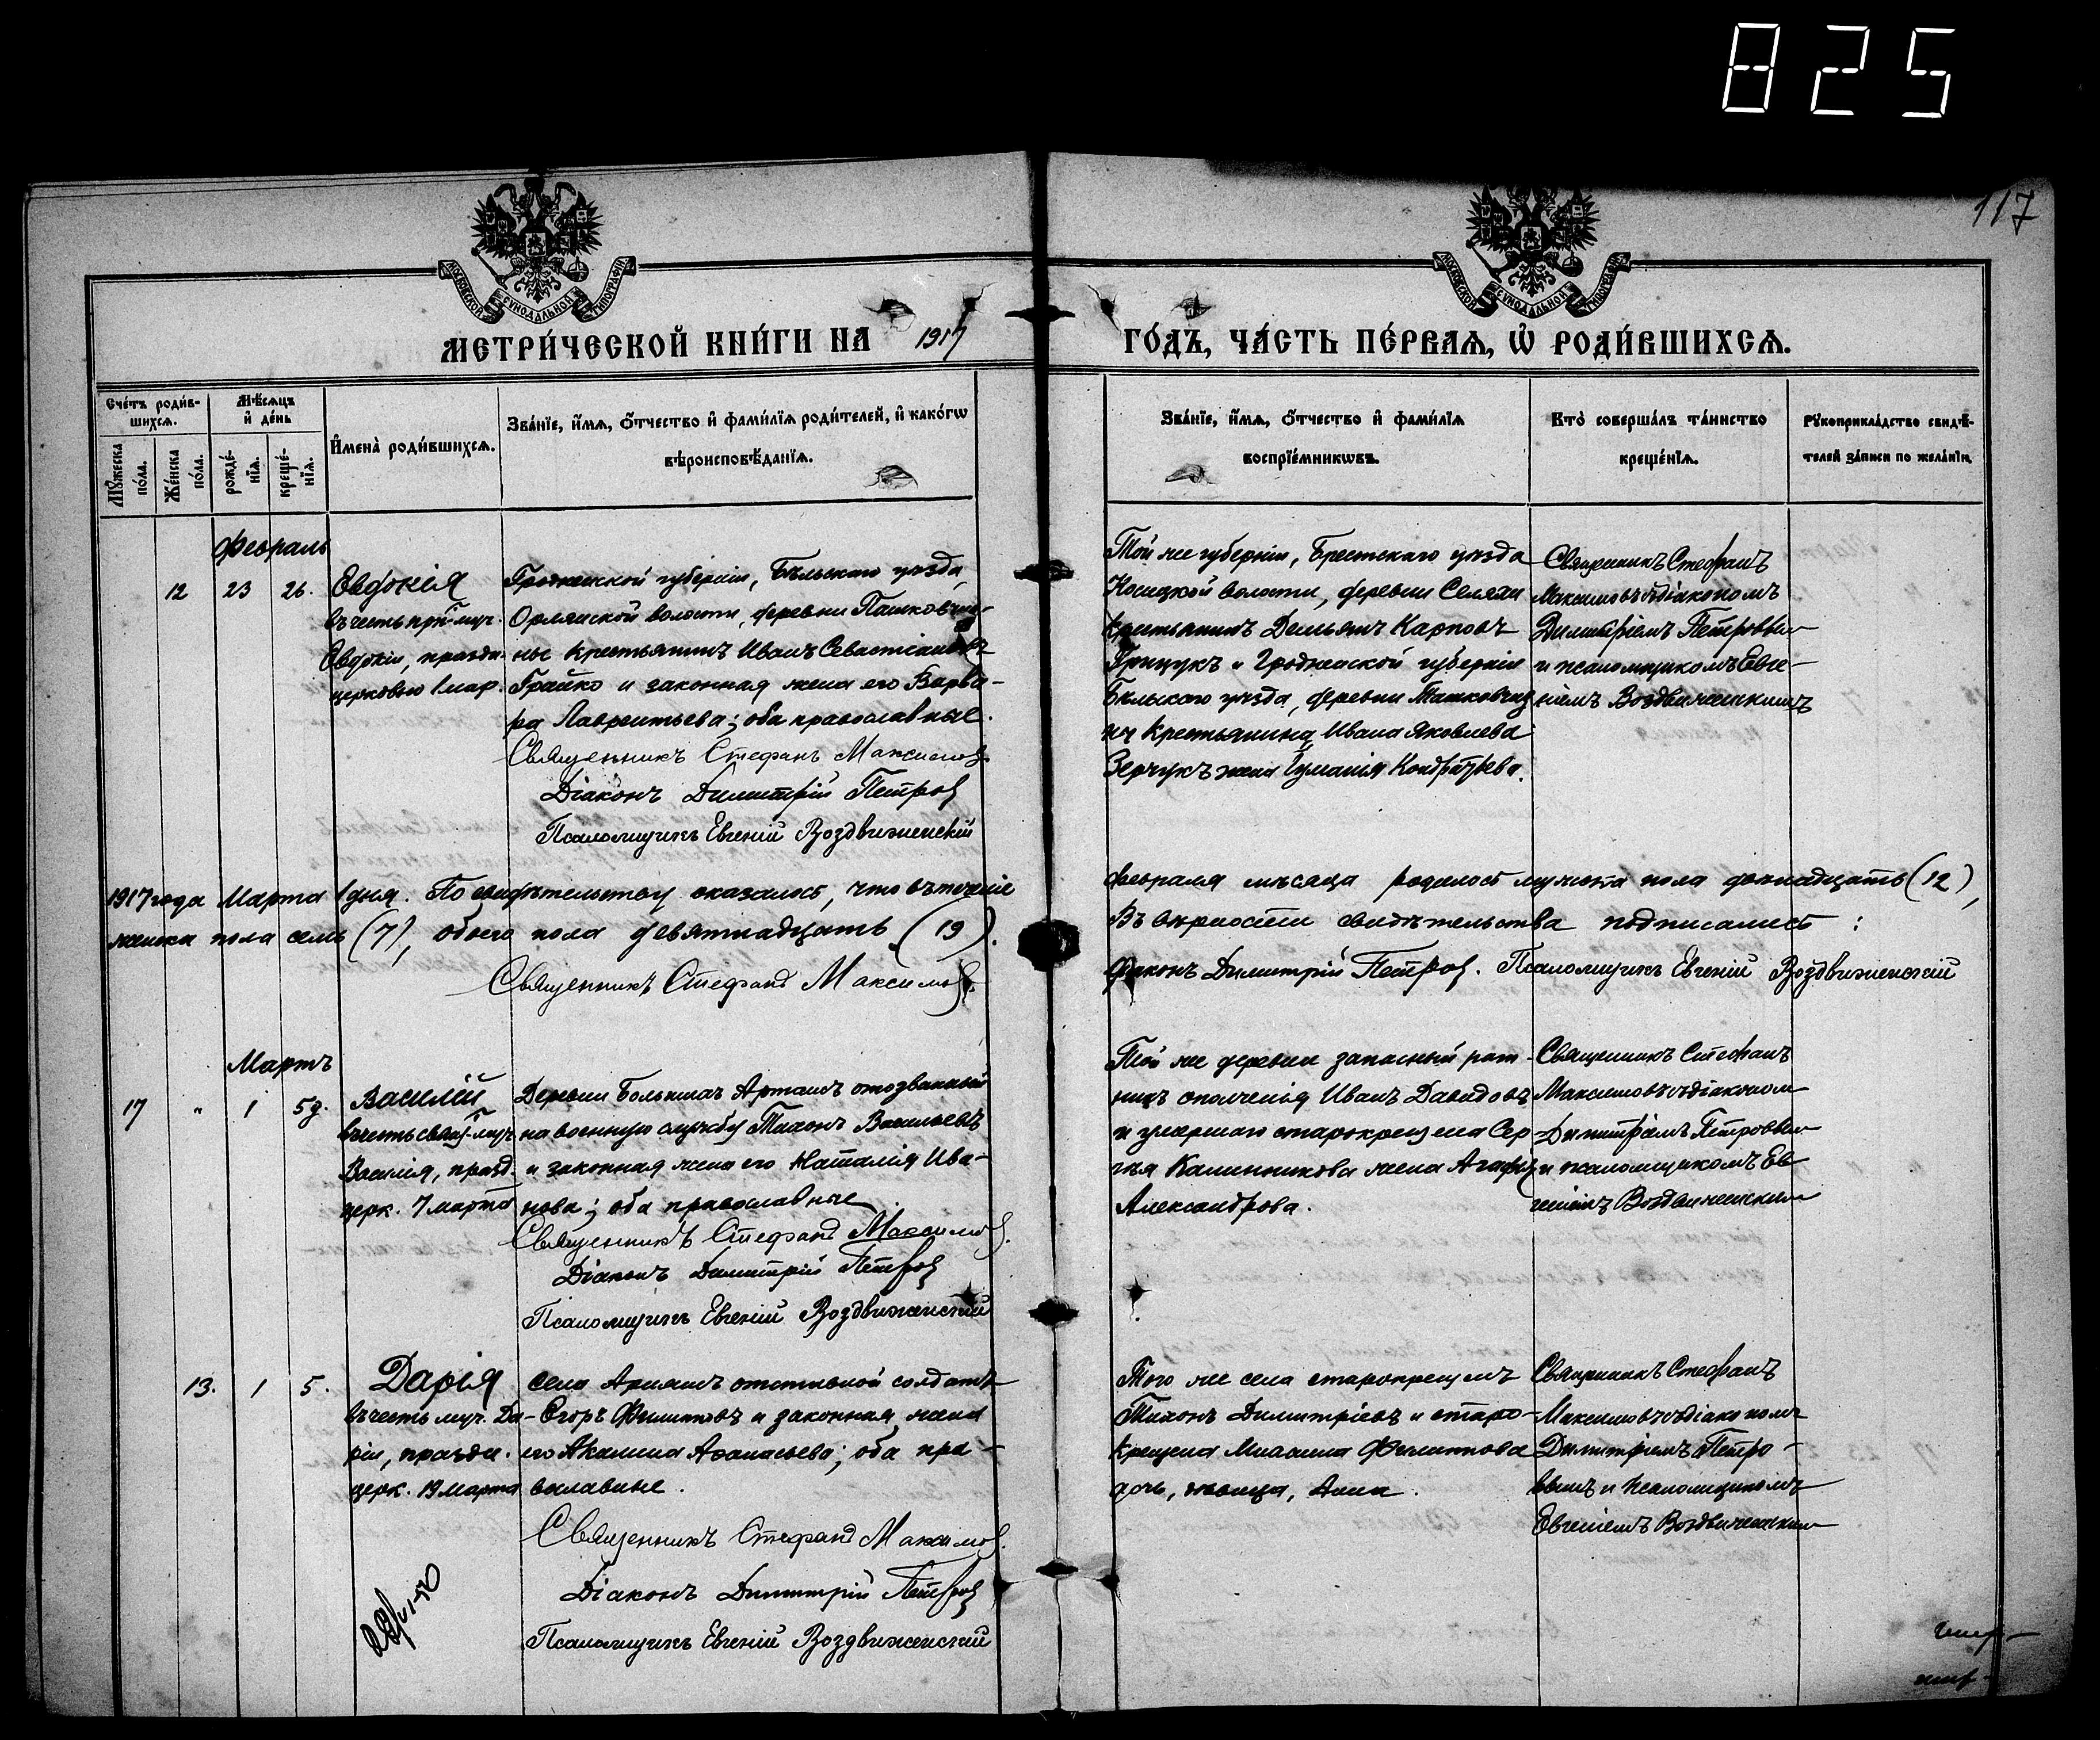 825
117
МОСКОВСКОЙ СѴНОДАЛЬНОЙ ТИПОГРАФІИ
МОСКОВСКОЙ СѴНОДАЛЬНОЙ ТИПОГРАФІИ
МЕТРИ́ЧЕСКОЙ КНИ́ГИ НА 1917
ГО́ДЪ, ЧА́СТЬ ПЕ́РВАѦ, Ѡ҆ РОДИ́ВШИХСѦ.
Сче́тъ роди́в-
шихсѧ.
Мѣ́сѧцъ
и҆ де́нь
Мꙋ́жеска
по́ла.
Же́нска
по́ла.
рожде́-
нїѧ.
креще́-
нїѧ.
И҆мена̀ роди́вшихсѧ.
Зва́нїе, и҆́мѧ, ѻ҆́тчество и҆ фами́лїѧ роди́телей, и҆ како́гѡ
вѣроисповѣ́данїѧ.
Зва́нїе, и҆́мѧ, ѻ҆́тчество и҆ фами́лїѧ
воспрїе́мникѡвъ.
Кто̀ соверша́лъ та́инство
креще́нїѧ.
Рꙋкоприкла́дство свидѣ́-
телей за́писи по жела́нїю.
Февраль
12 23 26.
Евдокія
въ честь при-муч.
Евдокіи, праздн.
церковью 1 мар.
Гродненской губерніи, Бѣльскаго уѣзда,
Орлянской волости, деревни Пашковщи-
ны крестьянинъ Иванъ Севастіановъ
Грайко и законная жена его Варва-
ра Лаврентьева; оба православные.
Священникъ Стефанъ Максимов.
Діаконъ Димитрій Петров
Псаломщикъ Евгеній Воздвиженскій
Той же губерніи, Брестскаго уѣзда
волости, деревни
крестьянинъ Демьянъ Карповъ
Грицукъ и Гродненской губерніи
Бѣльскаго уѣзда, деревни Пашковщи
ны крестьянина Ивана Яковлева
Зерчукъ жена Кондратьева.
Священникъ Стефанъ
Максимовъ съ діакономъ
Димитріемъ Петровым
и псаломщикомъ Евге-
ніемъ Воздвиженскимъ
1917 года Марта 1 дня. По свидѣтельству оказалось, что въ теченіе
февраля мѣсяца родилось мужска пола двенадцать (12),
женска пола семь (7), обоего пола девятнадцать (19).
Въ вѣрности свидѣтельства подписались:
Священникъ Стефанъ Максимов.
Діаконъ Димитрій Петров. Псаломщикъ Евгеній Воздвиженскій
Мартъ
17 " 1 5 д.
Василій
въ честь свящ-муч.
Василія, празд.
церк. 7 марта
Деревни Большихъ Арташъ отозванный
на военную службу Тихонъ Васильевъ
и законная жена его Наталія Ива-
нова; оба православные.
Священникъ Стефанъ Максимов.
Діаконъ Димитрій Петров
Псаломщикъ Евгеній Воздвиженскій
Той же деревни запасный рат-
никъ ополченія Иванъ Давидовъ
и умершаго старокрещена Сер-
гѣя Калинникова жена Агафія
Александрова.
Священникъ Стефанъ
Максимовъ съ діаконом
Димитріемъ Петровым
и псаломщикомъ Ев
геніемъ Воздвиженским
13. 1 5.
Дарія
въ честь муч. Да-
ріи, праздн.
церк. 19 марта
Села отставной солдатъ
Егоръ Филипповъ и законная жена
его Акилина Аѳанасьева; оба пра-
вславные.
Священникъ Стефанъ Максимов.
Діаконъ Димитрій Петров
Псаломщикъ Евгеній Воздвиженскій
Того же села старокрещенъ
Тихонъ Димитріевъ и старо-
крещена Михаила Филиппова
дочь, дѣвица, Анна.
Священникъ Стефанъ
Максимовъ съ діакономъ
Димитріемъ Петро-
вымъ и псаломщикомъ
Евгеніемъ Воздвиженским